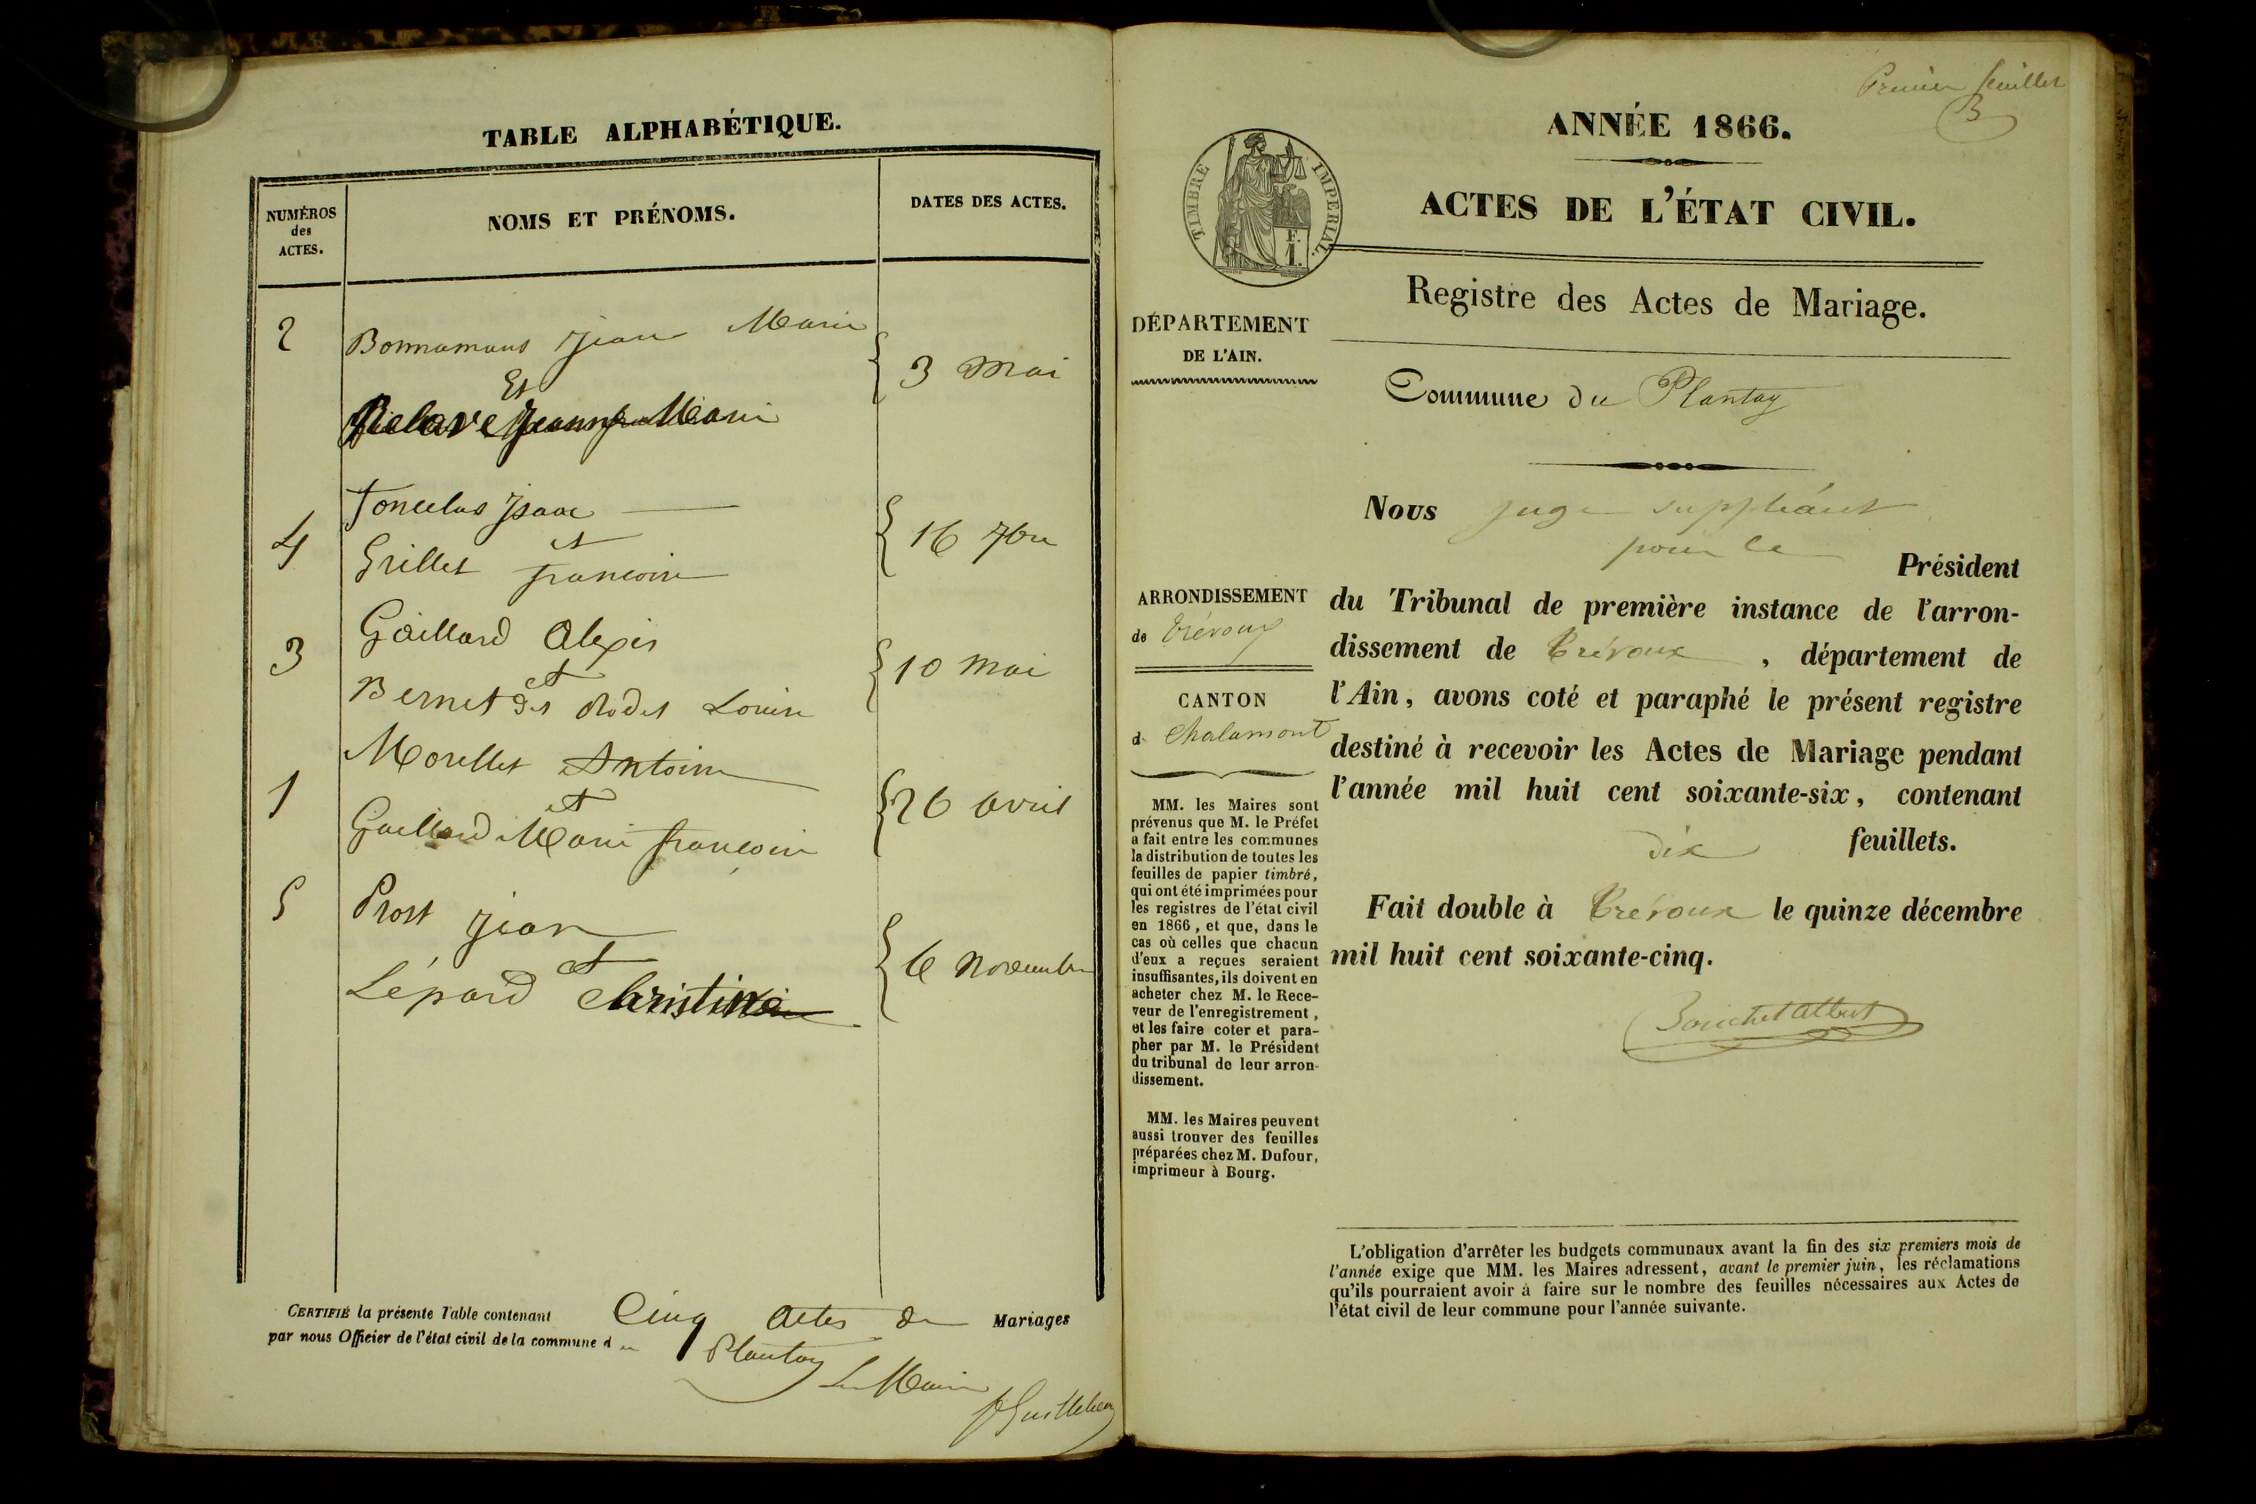 TABLE ALPHABÉTIQUE.
NUMÉROS
des
ACTES.
NOMS ET PRÉNOMS.
DATES DES ACTES.
2
Jean Marie
Et
Jeanne Marie
3 Mai
4
Isaac
et
Grillet françoise
16 7bre
3
Gaillard Alexis
et
Bernet des Rodet Louise
10 Mai
1
Morellet Antoine
et
Gaillard Marie françoise
26 Avril
5
Prost Jean
et
Lépard Christine
6 Novembre
CERTIFIÉ la présente Table contenant Cinq Actes de Mariages
par nous Officier de l'état civil de la commune du Plantay
Le Maire
Premier feuillet
B
ANNÉE 1866.
TIMBRE IMPERIAL.
F.
1.
ACTES DE L'ÉTAT CIVIL.
Registre des Actes de Mariage.
DÉPARTEMENT
DE L'AIN.
Commune du Plantay
Nous juge suppléant
pour le Président
du Tribunal de première instance de l'arron-
dissement de Trévoux, département de
l'Ain, avons coté et paraphé le présent registre
destiné à recevoir les Actes de Mariage pendant
l'année mil huit cent soixante-six, contenant
dix feuillets.
Fait double à Trévoux le quinze décembre
mil huit cent soixante-cinq.
Bouchet Albert
ARRONDISSEMENT
de Trévoux
CANTON
d Chalamont
MM. les Maires sont
prévenus que M. le Préfet
a fait entre les communes
la distribution de toutes les
feuilles de papier timbré,
qui ont été imprimées pour
les registres de l'état civil
en 1866, et que, dans le
cas où celles que chacun
d'eux a reçues seraient
insuffisantes, ils doivent en
acheter chez M. le Rece-
veur de l'enregistrement,
et les faire coter et para-
pher par M. le Président
du tribunal de leur arron-
dissement.
MM. les Maires peuvent
aussi trouver des feuilles
préparées chez M. Dufour,
imprimeur à Bourg.
L'obligation d'arrêter les budgets communaux avant la fin des six premiers mois de
l'année exige que MM. les Maires adressent, avant le premier juin, les réclamations
qu'ils pourraient avoir à faire sur le nombre des feuilles nécessaires aux Actes de
l'état civil de leur commune pour l'année suivante.